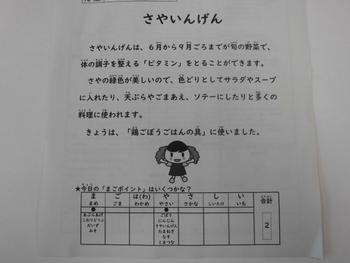 さやいんげん
さやいんげんは、6月から9月ごろまでが旬の野菜で、
体の調子を整える「ビタミン」をとることができます。
さやの緑色が美しいので、色どりとしてサラダやスープ
に入れたり、天ぷらやごまあえ、ソテーにしたりと多くの
料理に使われます。
きょうは、「鶏ごぼうごはんの具」に使いました。
★今日の「まごポイント」はいくつかな?
ま ご は(わ) や さ し い 合計
まめ ごま わかめ やさい さかな しいたけ いも
● ● 2
あぶらあげ ごぼう
にんじん
だいず さやいんげん
みそ たまねぎ
なす
こまつな